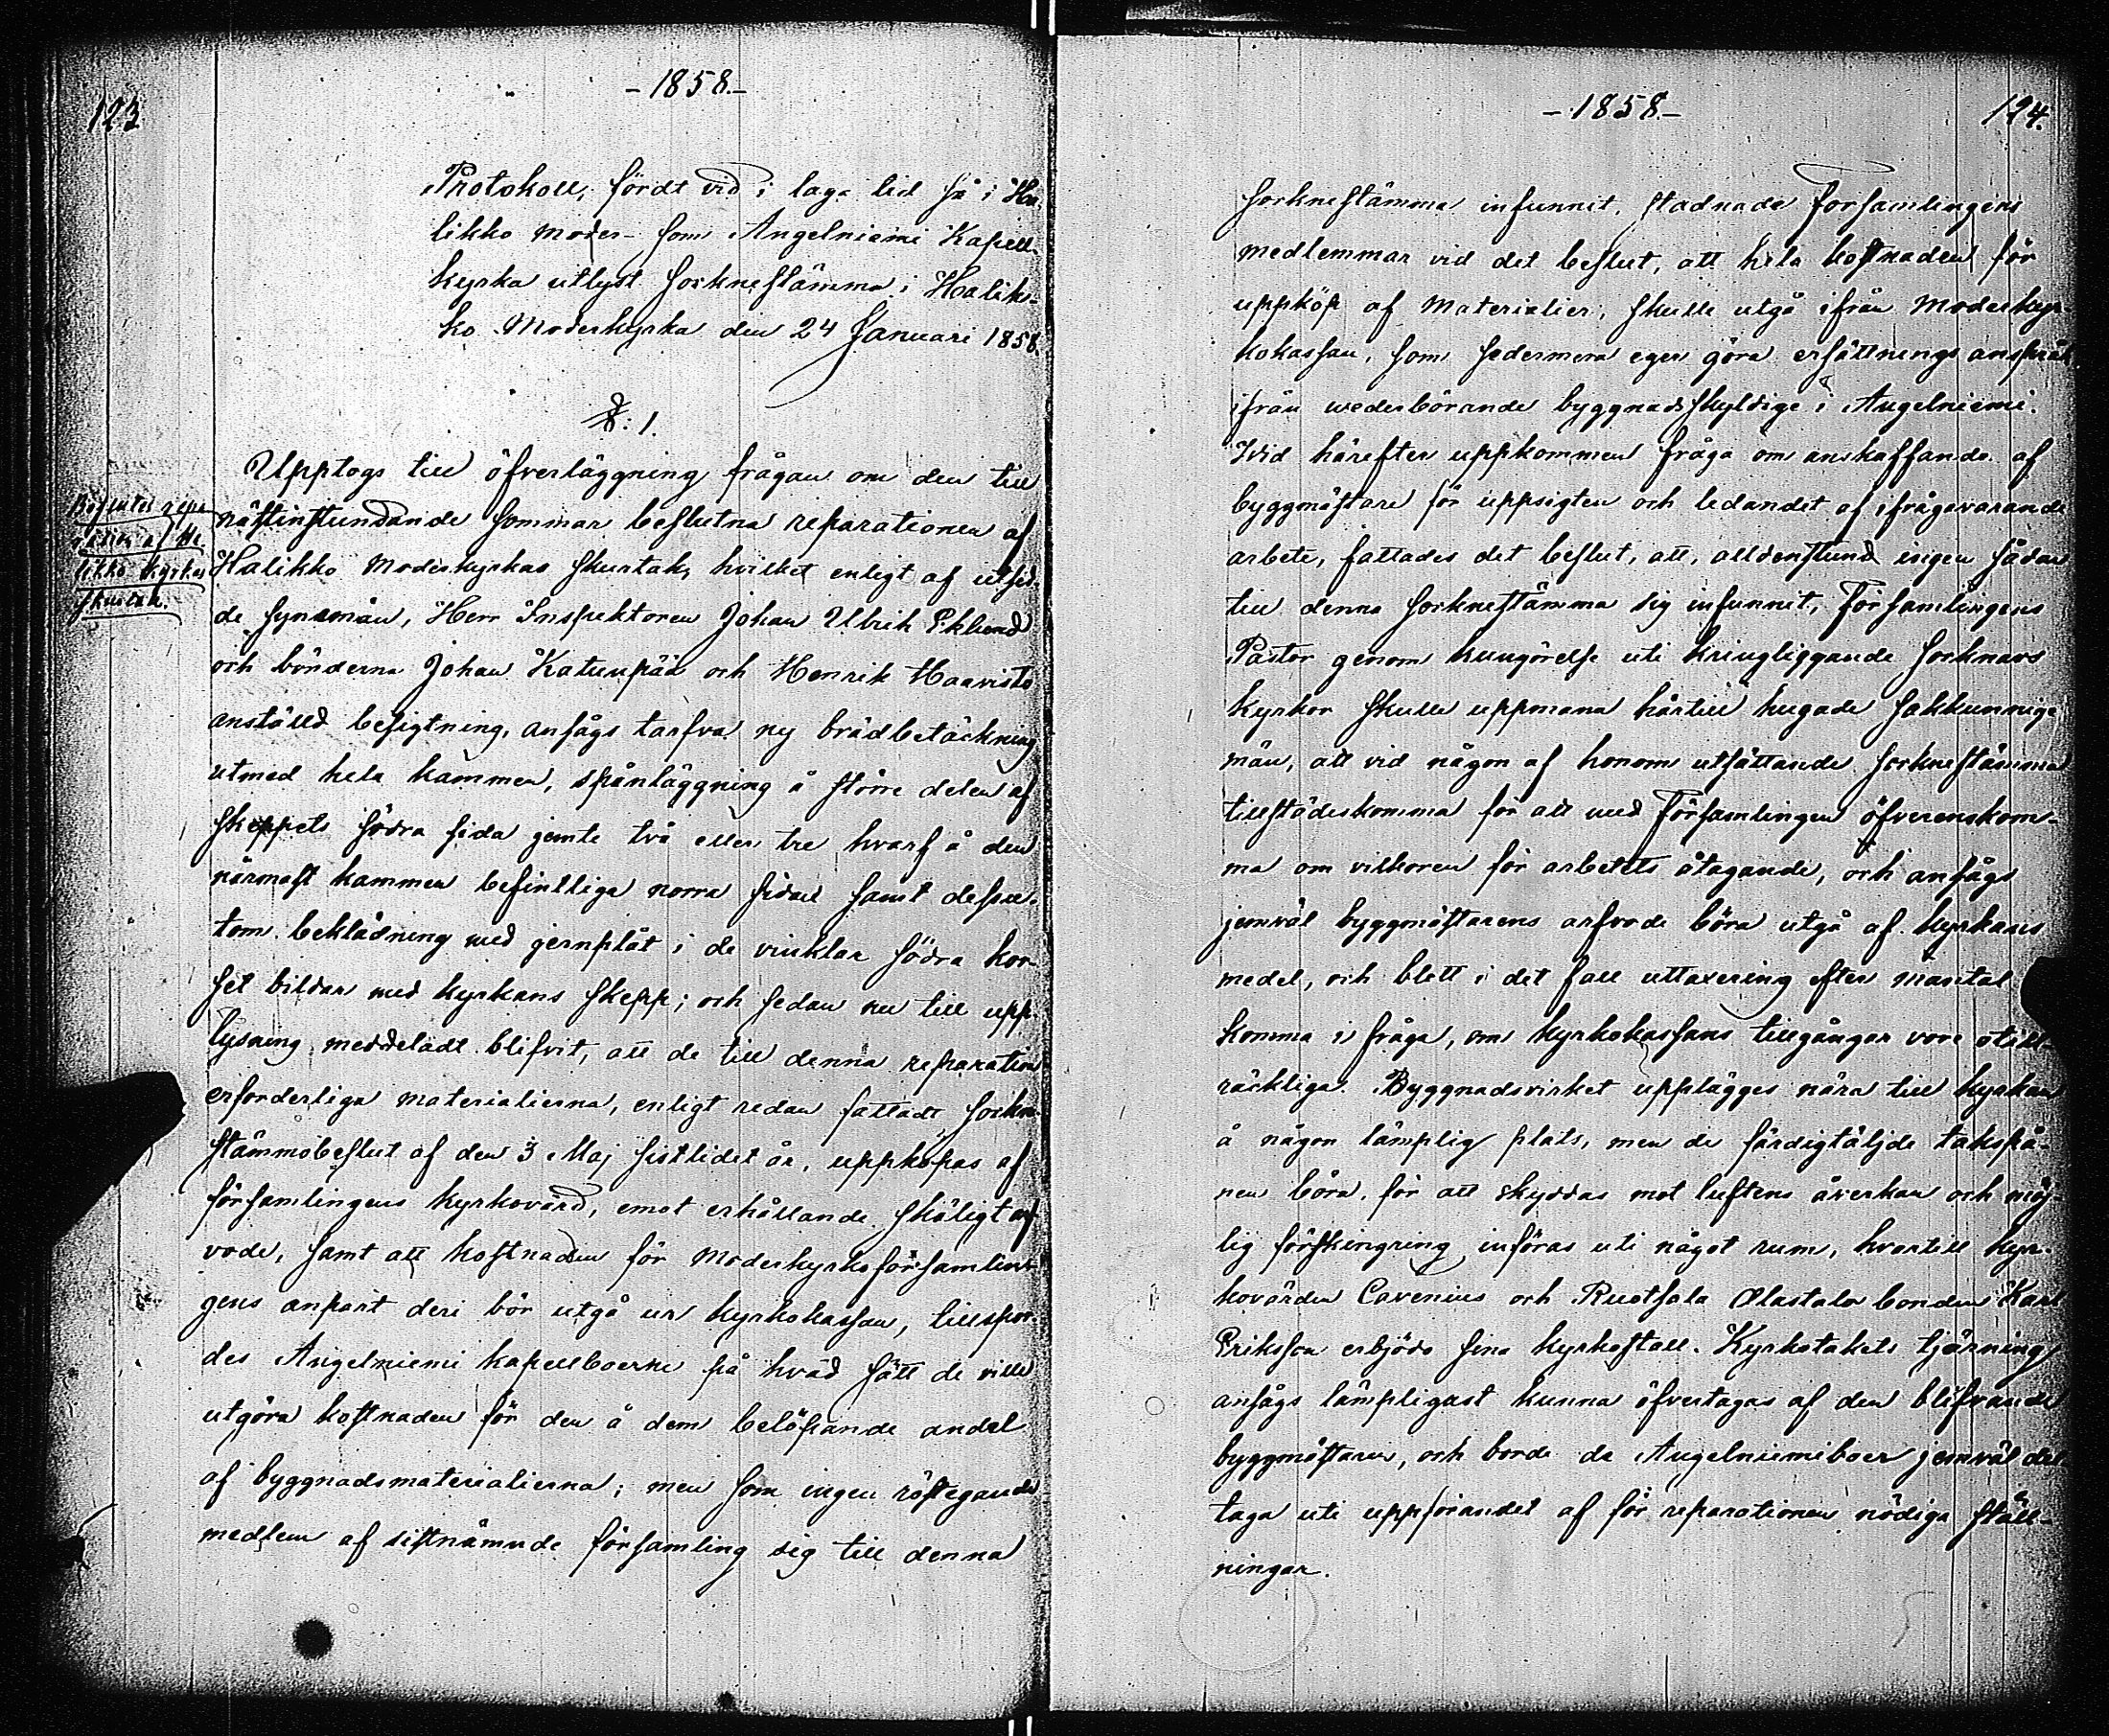 123
- 1858. -
Protokoll, fördt vid i laga tid så i Ha-
likko Moder- som Angelniemi Kapell-
kyrka utlyst sockneſtämma i Halik-
ko Moderkyrka den 24 Januari 1858.
§: 1.
Upptogs till öfverläggning frågan om den till
näſtinſtundande sommar beſlutna reparationen af
Halikko Moderkyrkas skurtak, hvilket enligt af utsed-
de synemän, Herr Inspektoren Johan Ulrik Eklund
och bönderna Johan Katunpää och Henrik Haavisto
anställd besigtning, ansågs tarfva ny brädbetäckning
utmed hela kammen, spånläggning å större delen af
skeppets södra sida jemte två eller tre hvarf å den
närmaſt kammen befintliga norra sidan samt dessu-
tom beklädning med jernplåt i de vinklar södra kor-
set bildar med kyrkans skepp; och sedan nu till upp-
lysning meddeladt blifvit, att de till denna reparation
erforderliga materialierna, enligt redan fattadt sockne-
ſtämmobeſlut af den 3 Maj sistlidet år, uppköpas af
församlingens kyrkovärd, emot erhållande skäligt ar-
vode, samt att koſtnaden för Moderkyrkoförsamlin-
gens anpart deri bör utgå ur kyrkokassan, tillspor-
des Angelniemi kapellboerne på hvad sätt de ville
utgöra koſtnaden för den å dem belöpande andel
af byggnadsmaterialierna; men som ingen röſtegande
medlem af siſtnämnde församling sig till denna
Halikko kyrkas
skurtak.
- 1858. -
124.
sockneſtämma infunnit, stadnade Församlingens
medlemmar vid det beſlut, att hela koſtnaden för
uppköp af Materialier, skulle utgå ifrån Moderkyr-
kokassan, som sedermera eger göra ersättnings anspråk
ifrån wederbörande byggnadsskyldige i Angelniemi.
Wid härefter uppkommen fråga om anskaffande af
byggmäſtare för uppsigten och ledandet af ifrågavarande
arbete, fattades det beſlut, att, alldenſtund ingen sådan
till denna sockneſtämma sig infunnit, Församlingens
Pastor genom kungörelse uti kringliggande socknars
kyrkor skulle uppmana härtill hugade sakkunnige
män, att vid någon af honom utsättande sockneſtämma
tillſtädeskomma för att med Församlingen öfverenskom-
ma om vilkoren för arbetets åtagande, och ansågs
jemväl byggmäſtarens arfvode böra utgå af kyrkans
medel, och blott i det fall uttaxering efter mantal
komma i fråga, om kyrkokassans tillgångar vore otill-
räckliga. Byggnadsvirket upplägges nära till kyrkan
å någon lämplig plats, men de färdigtäljde takspå-
nen böra, för att skyddas mot luftens åverkan och möj-
lig förskingring införas uti något rum, hvartill kyr-
kovärden Cavenius och Ruotsala Alastalo bonden Karl
Eriksson erbjödo sina kyrkoſtall. Kyrkotakets tjärning
ansågs lämpligast kunna öfvertagas af den blifvande
byggmäſtaren, och borde de Angelniemiboer jemväl del-
taga uti uppförandet af för reparationen nödiga ſtäll-
ningar.